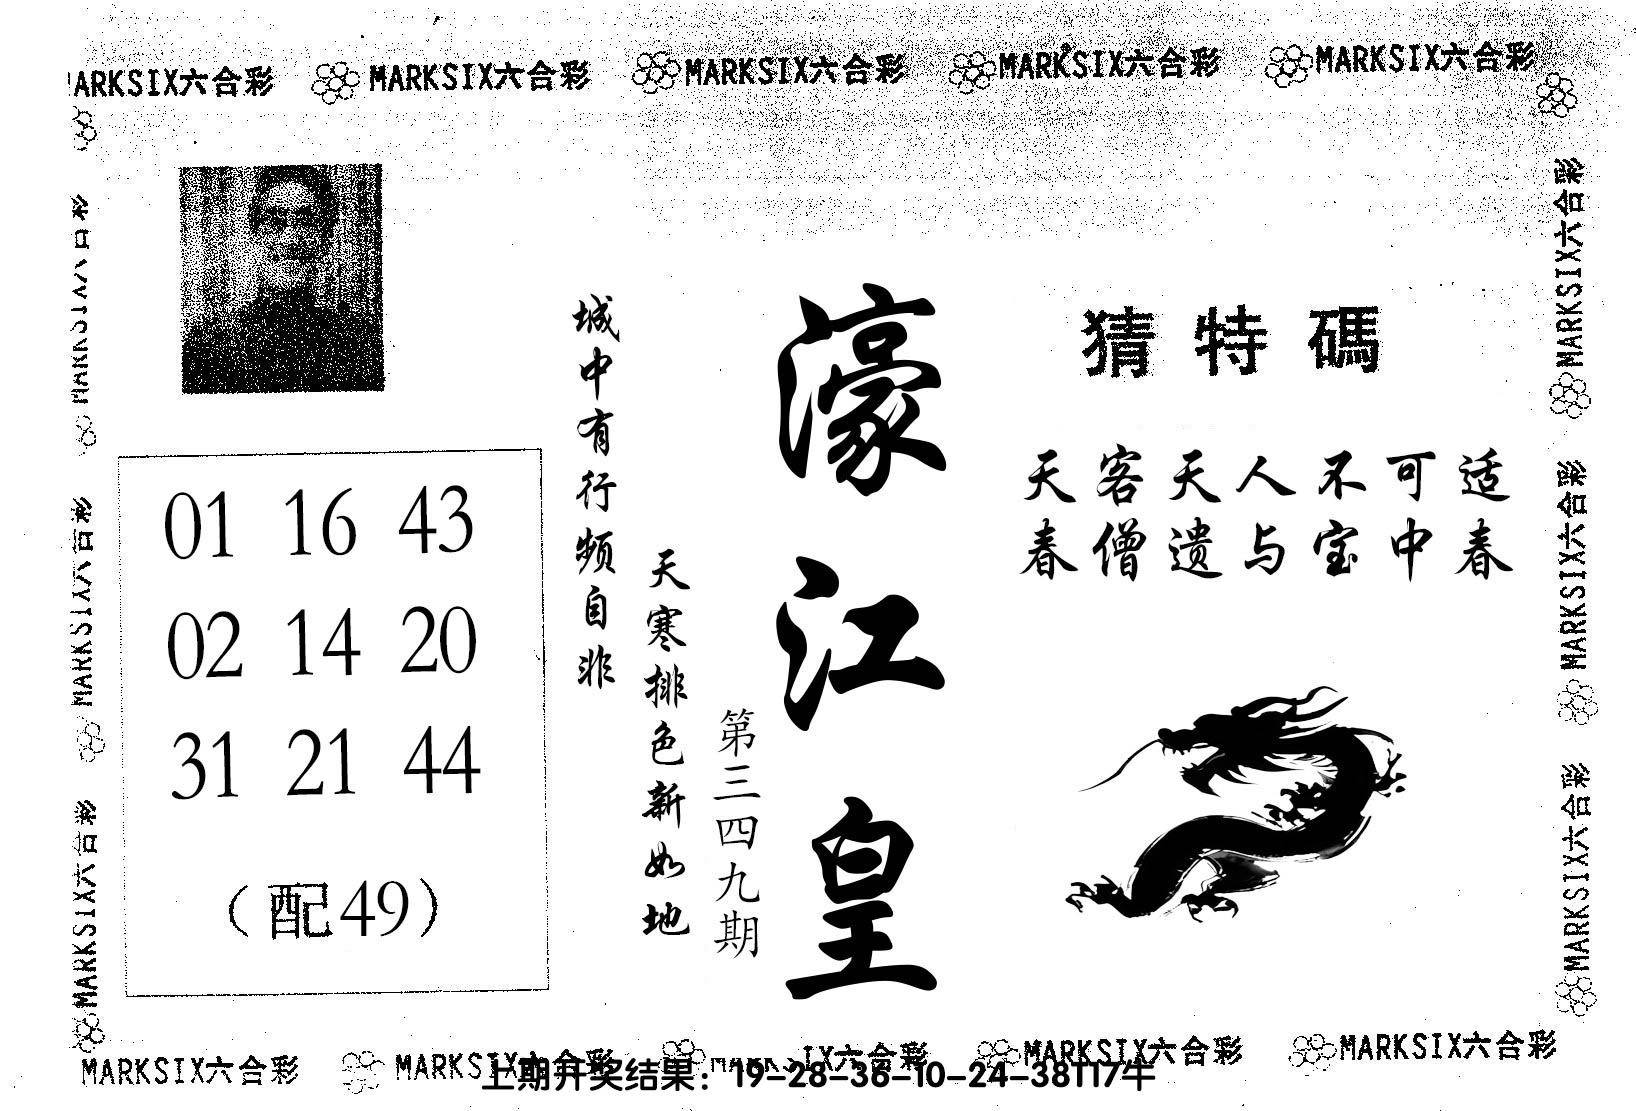 MARKSIX六合彩 MARKSIX六合彩 MARKSIX六合彩 MARKSIX六合彩 MARKSIX六合彩
猜特碼
天客天人不可适
春僧遗与宝中春
濠江皇
第三四九期
城中有行频自非
天寒排色新如地
01 16 43
02 14 20
31 21 44
（配49）
MARKSIX六合彩
MARKSIX六合彩
MARKSIX六合彩
MARKSIX六合彩
MARKSIX六合彩
MARKSIX六合彩
MARKSIX六合彩 MARKSIX六合彩 MARKSIX六合彩 MARKSIX六合彩
上期开奖结果：19-28-36-10-24-38T17牛